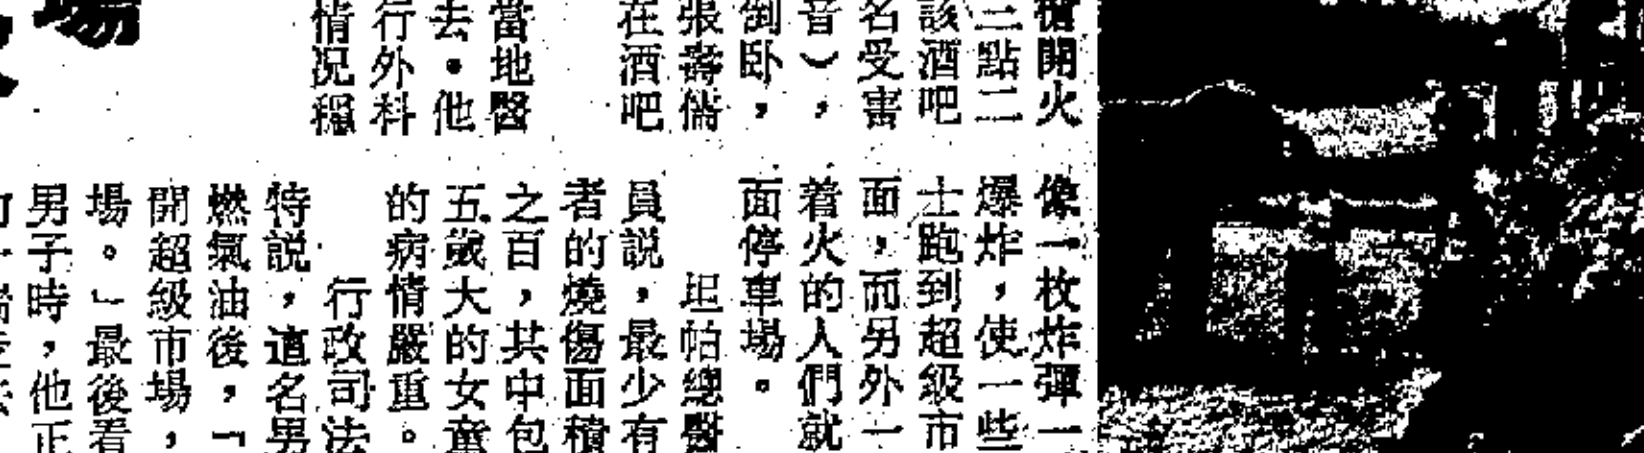 槍開火
三點二
該酒吧
名受害
音），
倒卧，
張壽儲
在酒吧
當地醫
去。他
行外科
情况穩
場
像一枚炸彈一
爆炸，使一些
士跑到超級市
面，而另外一
着火的人們就
面停車場。
坦帕總醫
員説，最少有
者的燒傷面積
之百，其中包
五歲大的女童
的病情嚴重。
行政司法
特説，這名男
燃氣油後，「
開超級市場，
場。」最後看
男子時，他正